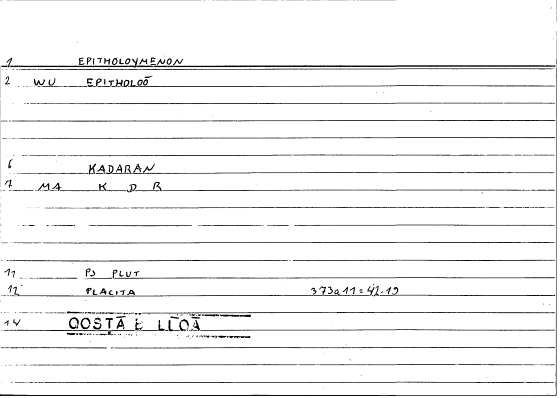 1 EPITHOLOYMENON
2 WU EPITHOLOŌ
6 KADARAN
7 MA K D R
11 PS PLUT
12 PLACITA 373a11=42.19
14 QOSṬĀ